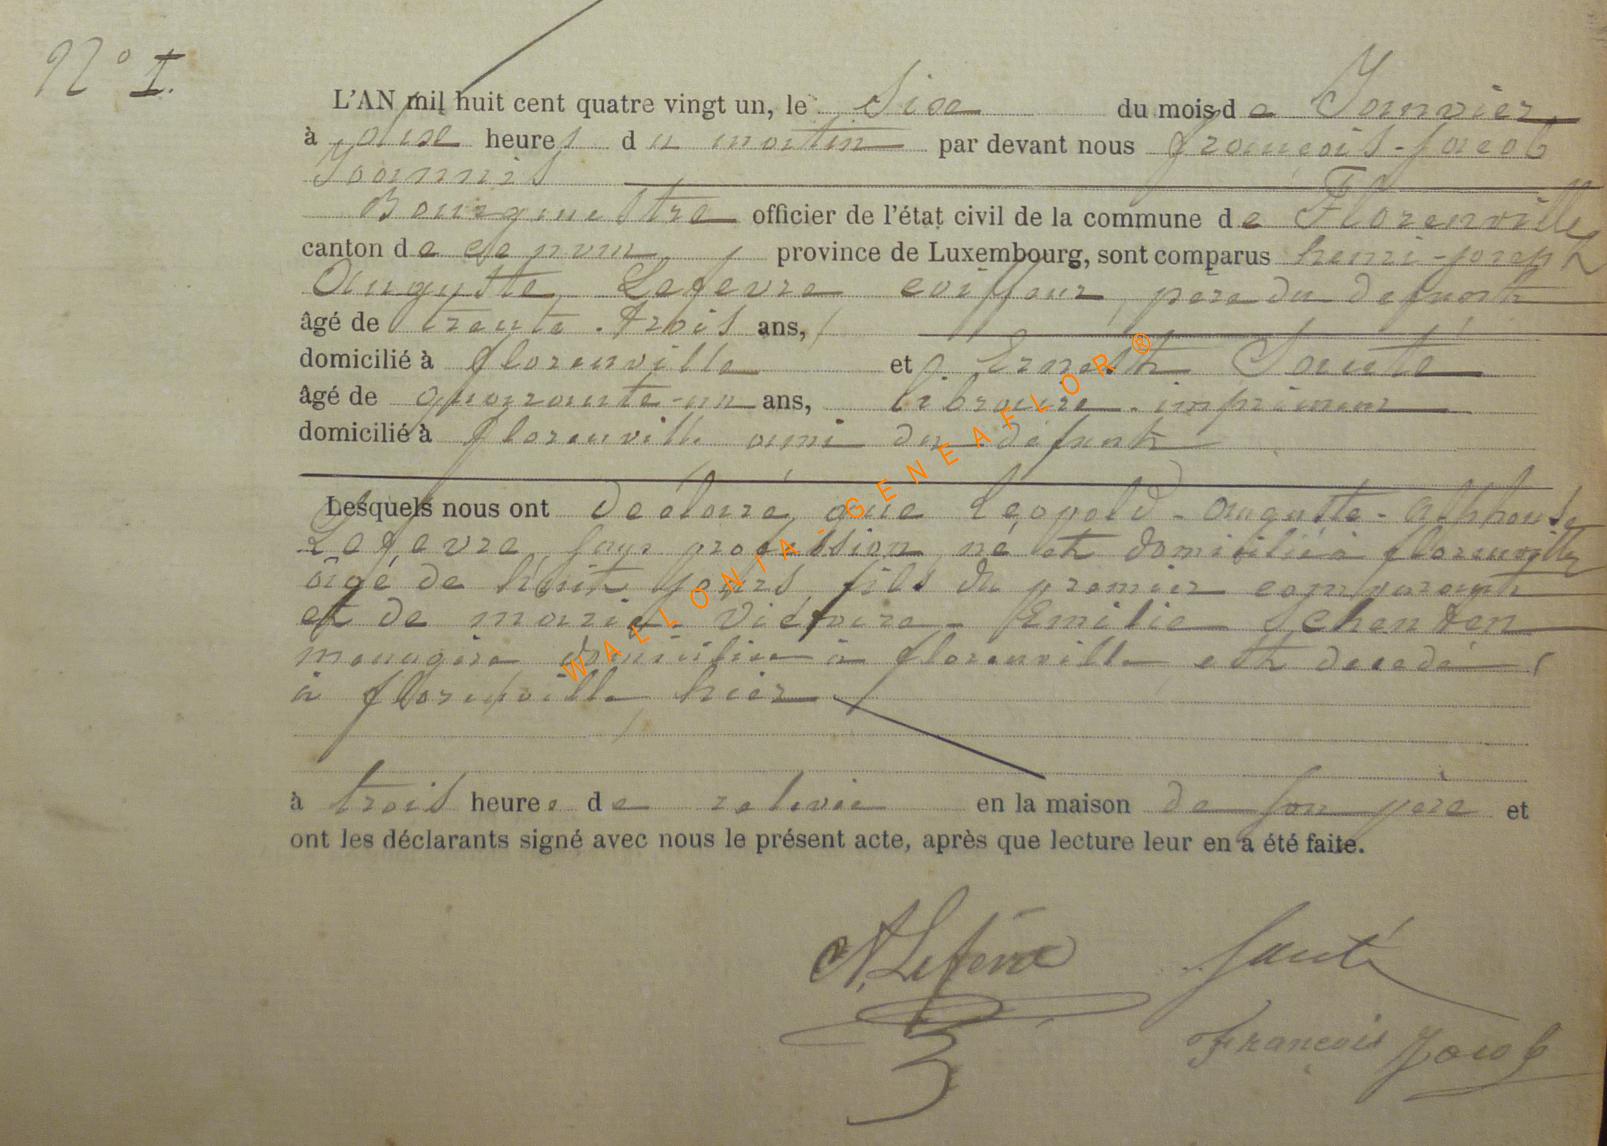 N° I.
L'AN mil huit cent quatre vingt un, le Six du mois de Janvier
à dix heures du matin par devant nous françois-Jacob
Joannis
Bourgmestre officier de l'état civil de la commune de Florenville
canton de ce nom province de Luxembourg, sont comparus henri-joseph
Auguste Lefevre coiffeur, père du defunt
âgé de trente-trois ans,
domicilié à florenville et Ernest Santé
âgé de quarante-un ans, libraire-imprimeur
domicilié à florenville ami du défunt
Lesquels nous ont déclaré que Léopold-Auguste-Alphonse
Lefevre, sans profession, né et domicilié à florenville
âgé de huit jours, fils du premier comparant
et de marie-Victoire-Emilie Schenten
menagère domiciliée à florenville est decedé
à florenville hier
à trois heure de relevée en la maison de son père et
ont les déclarants signé avec nous le présent acte, après que lecture leur en a été faite.
A. Lefèvre Santé
François Jacob
WALLONIA-GENEAFLOR ®